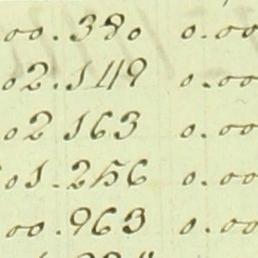 00.380 0.00
02.149 0.00
02 163 0.00
01.256 0.00
00.963 0.00